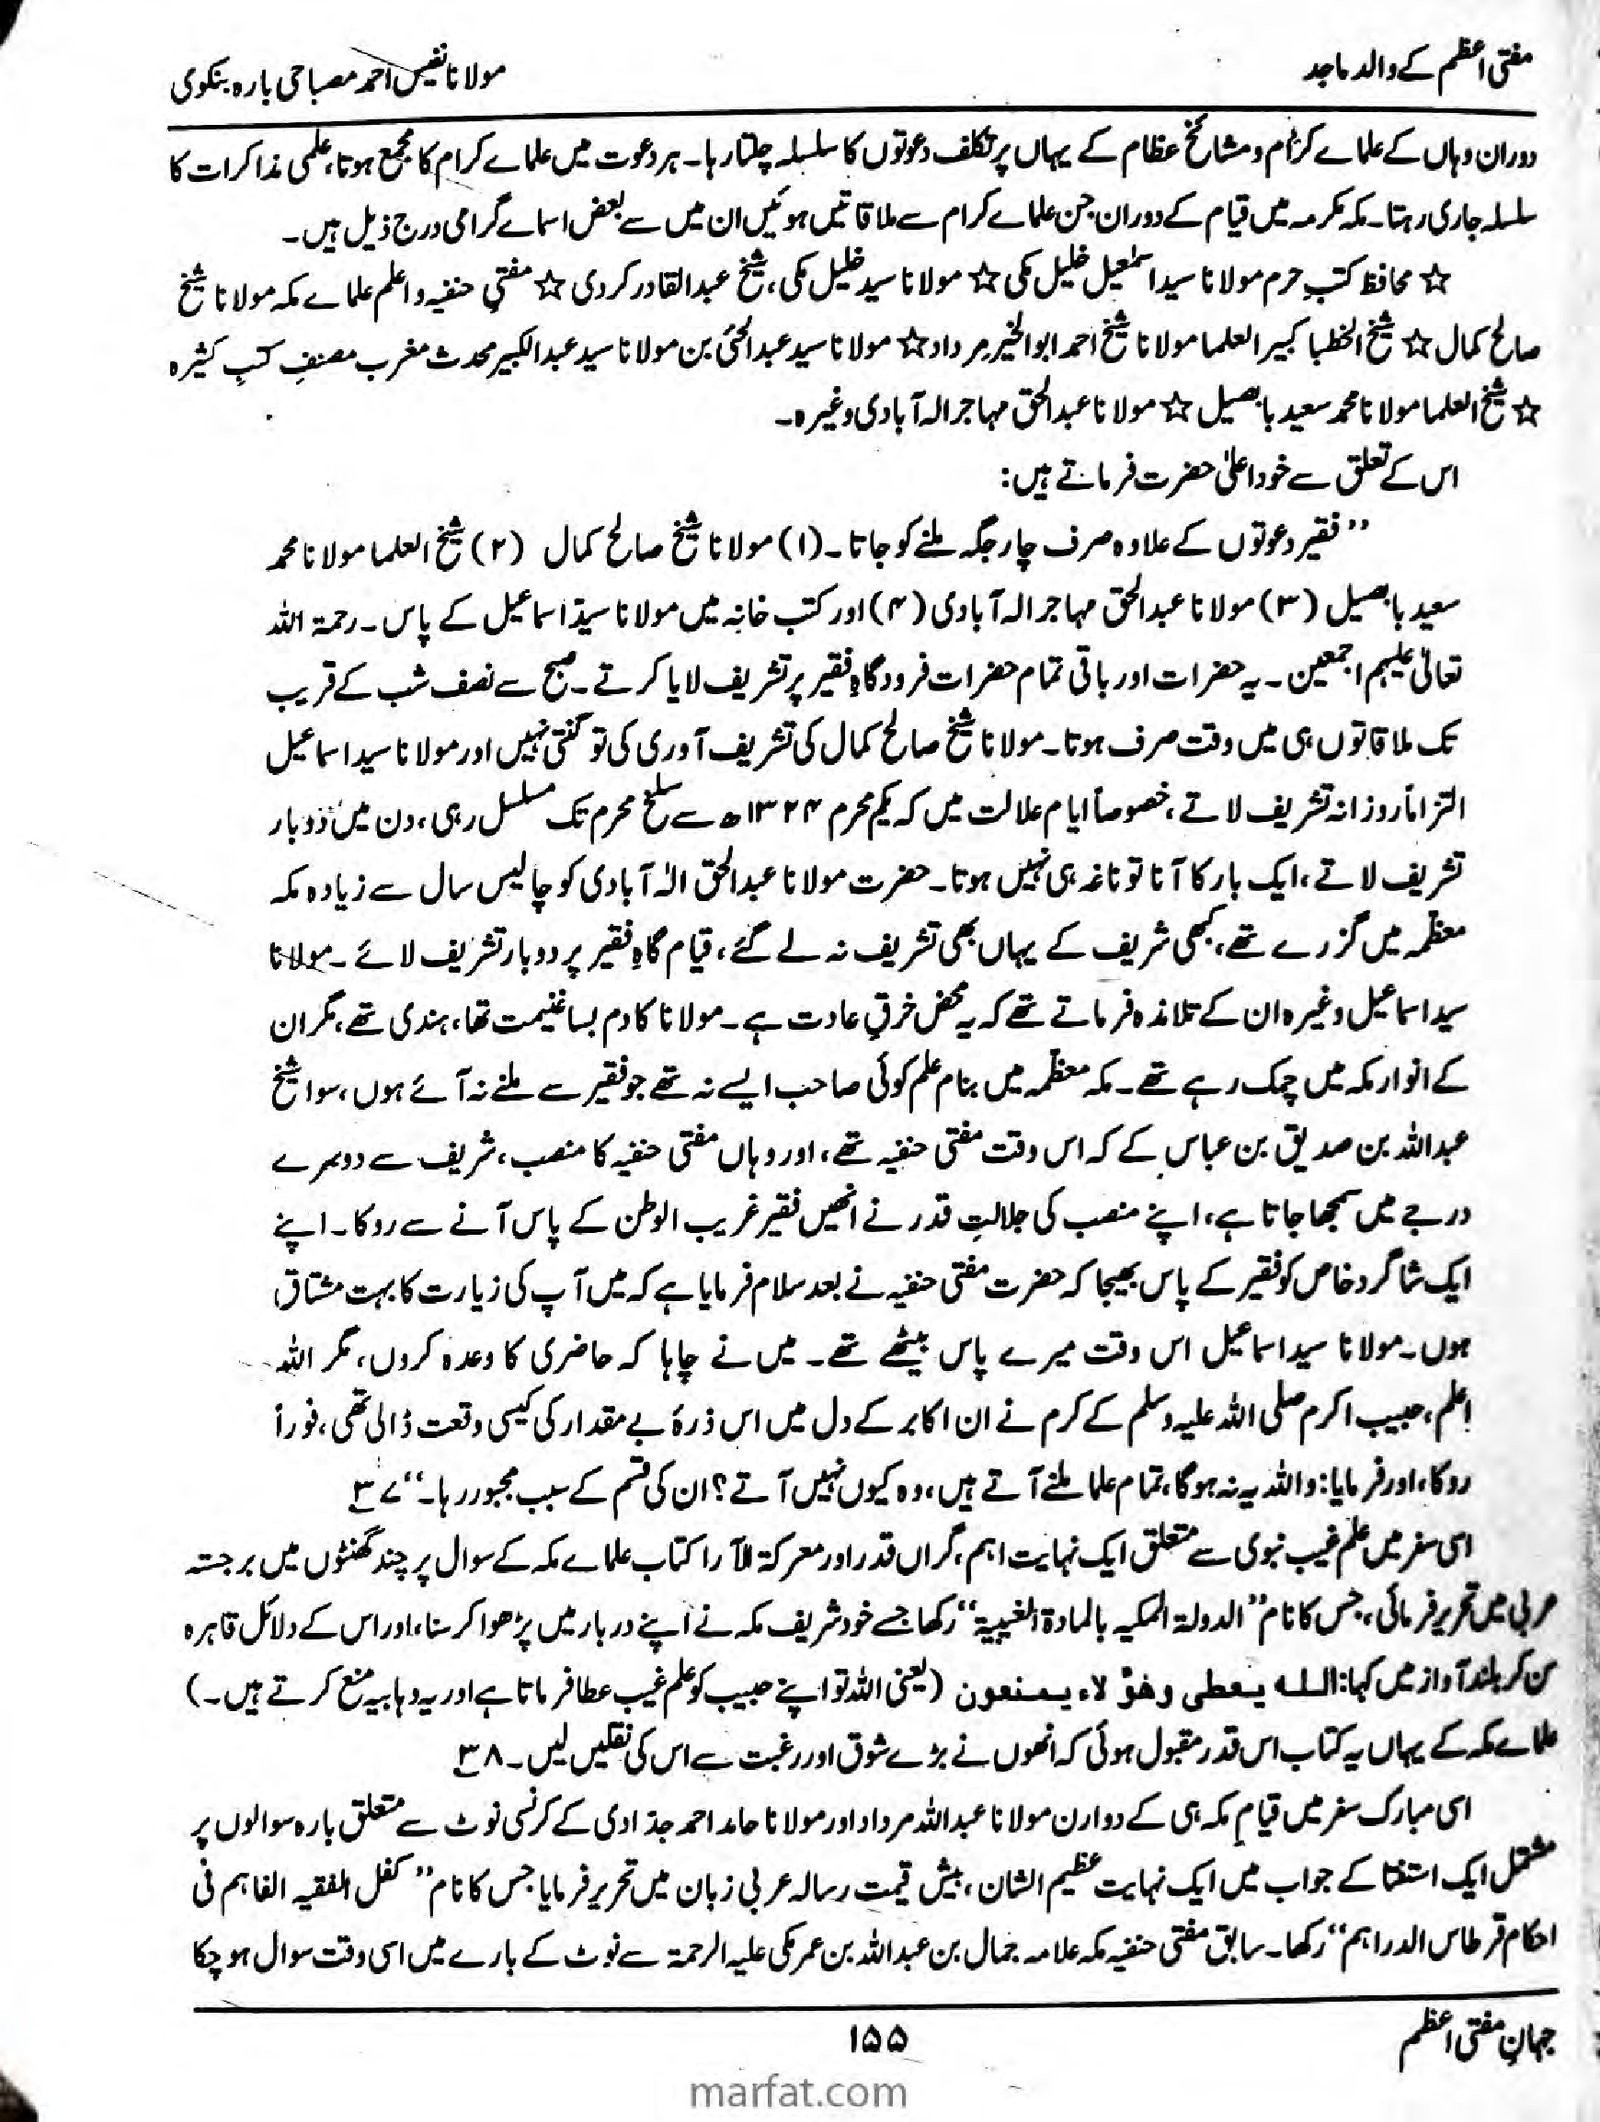 مفتی اعظم کے والد ماجد
مولانا نفیس احمد مصباحی بارہ بنکوی
دوران وہاں کے علماے کرام و مشائخ عظام کے یہاں پرتکلف دعوتوں کا سلسلہ چلتا رہا۔ ہر دعوت میں علماے کرام کا مجمع ہوتا، علمی مذاکرات کا
سلسلہ جاری رہتا۔ مکہ مکرمہ میں قیام کے دوران جن علماے کرام سے ملاقاتیں ہوئیں ان میں سے بعض اسماے گرامی درج ذیل ہیں۔
☆ محافظ کتبِ حرم مولانا سید اسمٰعیل خلیل مکی ☆ مولانا سید خلیل مکی، شیخ عبدالقادر کردی ☆ مفتیِ حنفیہ و اعلم علماے مکہ مولانا شیخ
صالح کمال ☆ شیخ الخطبا کبیر العلما مولانا شیخ احمد ابوالخیر مرداد ☆ مولانا سید عبدالحئی بن مولانا سید عبدالکبیر محدث مغرب مصنفِ کتبِ کثیرہ
☆ شیخ العلما مولانا محمد سعید بابصیل ☆ مولانا عبدالحق مہاجر الہ آبادی وغیرہ۔
اس کے تعلق سے خود اعلیٰ حضرت فرماتے ہیں:
”فقیر دعوتوں کے علاوہ صرف چار جگہ ملنے کو جاتا۔ (۱) مولانا شیخ صالح کمال (۲) شیخ العلما مولانا محمد
سعید بابصیل (۳) مولانا عبدالحق مہاجر الہ آبادی (۴) اور کتب خانہ میں مولانا سید اسماعیل کے پاس۔ رحمۃ اللہ
تعالیٰ علیہم اجمعین۔ یہ حضرات اور باقی تمام حضرات فرودگاہِ فقیر پر تشریف لایا کرتے۔ صبح سے نصف شب کے قریب
تک ملاقاتوں ہی میں وقت صرف ہوتا۔ مولانا شیخ صالح کمال کی تشریف آوری کی تو گنتی نہیں اور مولانا سید اسماعیل
التزاماً روزانہ تشریف لاتے، خصوصاً ایام علالت میں کہ یکم محرم ۱۳۲۴ھ سے سلخ محرم تک مسلسل رہی، دن میں دو بار
تشریف لاتے، ایک بار کا آنا تو ناغہ ہی نہیں ہوتا۔ حضرت مولانا عبدالحق الہٰ آبادی کو چالیس سال سے زیادہ مکہ
معظمہ میں گزرے تھے، کبھی شریف کے یہاں بھی تشریف نہ لے گئے، قیام گاہِ فقیر پر دو بار تشریف لائے۔ مولانا
سید اسماعیل وغیرہ ان کے تلامذہ فرماتے تھے کہ یہ محض خرقِ عادت ہے۔ مولانا کا دم بسا غنیمت تھا، ہندی تھے، مگر ان
کے انوار مکہ میں چمک رہے تھے۔ مکہ معظمہ میں بنام علم کوئی صاحب ایسے نہ تھے جو فقیر سے ملنے نہ آئے ہوں، سوا شیخ
عبداللہ بن صدیق بن عباس کے کہ اس وقت مفتی حنفیہ تھے، اور وہاں مفتی حنفیہ کا منصب، شریف سے دوسرے
درجے میں سمجھا جاتا ہے، اپنے منصب کی جلالتِ قدر نے انھیں فقیر غریب الوطن کے پاس آنے سے روکا۔ اپنے
ایک شاگرد خاص کو فقیر کے پاس بھیجا کہ حضرت مفتی حنفیہ نے بعد سلام فرمایا ہے کہ میں آپ کی زیارت کا بہت مشتاق
ہوں۔ مولانا سید اسماعیل اس وقت میرے پاس بیٹھے تھے۔ میں نے چاہا کہ حاضری کا وعدہ کروں، مگر اللہ
اعلم، حبیب اکرم صلی اللہ علیہ وسلم کے کرم نے ان اکابر کے دل میں اس ذرۂ بے مقدار کی کیسی وقعت ڈالی تھی، فوراً
روکا، اور فرمایا: واللہ یہ نہ ہوگا، تمام علما ملنے آتے ہیں، وہ کیوں نہیں آتے؟ ان کی قسم کے سبب مجبور رہا۔“ ۳۷
اسی سفر میں علمِ غیبِ نبوی سے متعلق ایک نہایت اہم، گراں قدر اور معرکۃ الآرا کتاب علماے مکہ کے سوال پر چند گھنٹوں میں برجستہ
عربی میں تحریر فرمائی، جس کا نام ”الدولۃ المکیہ بالمادۃ الغیبیۃ“ رکھا جسے خود شریف مکہ نے اپنے دربار میں پڑھوا کر سنا، اور اس کے دلائل قاہرہ
سن کر بلند آواز میں کہا: اللہ یعطی وھٰؤلاء یمنعون (یعنی اللہ تو اپنے حبیب کو علم غیب عطا فرماتا ہے اور یہ وہابیہ منع کرتے ہیں۔)
علماے مکہ کے یہاں یہ کتاب اس قدر مقبول ہوئی کہ انھوں نے بڑے شوق اور رغبت سے اس کی نقلیں لیں۔ ۳۸
اسی مبارک سفر میں قیام مکہ ہی کے دوارن مولانا عبداللہ مرداد اور مولانا حامد احمد جدّادی کے کرنسی نوٹ سے متعلق بارہ سوالوں پر
مشتمل ایک استفتا کے جواب میں ایک نہایت عظیم الشان، بیش قیمت رسالہ عربی زبان میں تحریر فرمایا جس کا نام ”کفل الفقیہ الفاہم فی
احکام قرطاس الدراہم“ رکھا۔ سابق مفتی حنفیہ مکہ علامہ جمال بن عبداللہ بن عمر مکی علیہ الرحمۃ سے نوٹ کے بارے میں اسی وقت سوال ہو چکا
جہانِ مفتی اعظم
۱۵۵
marfat.com